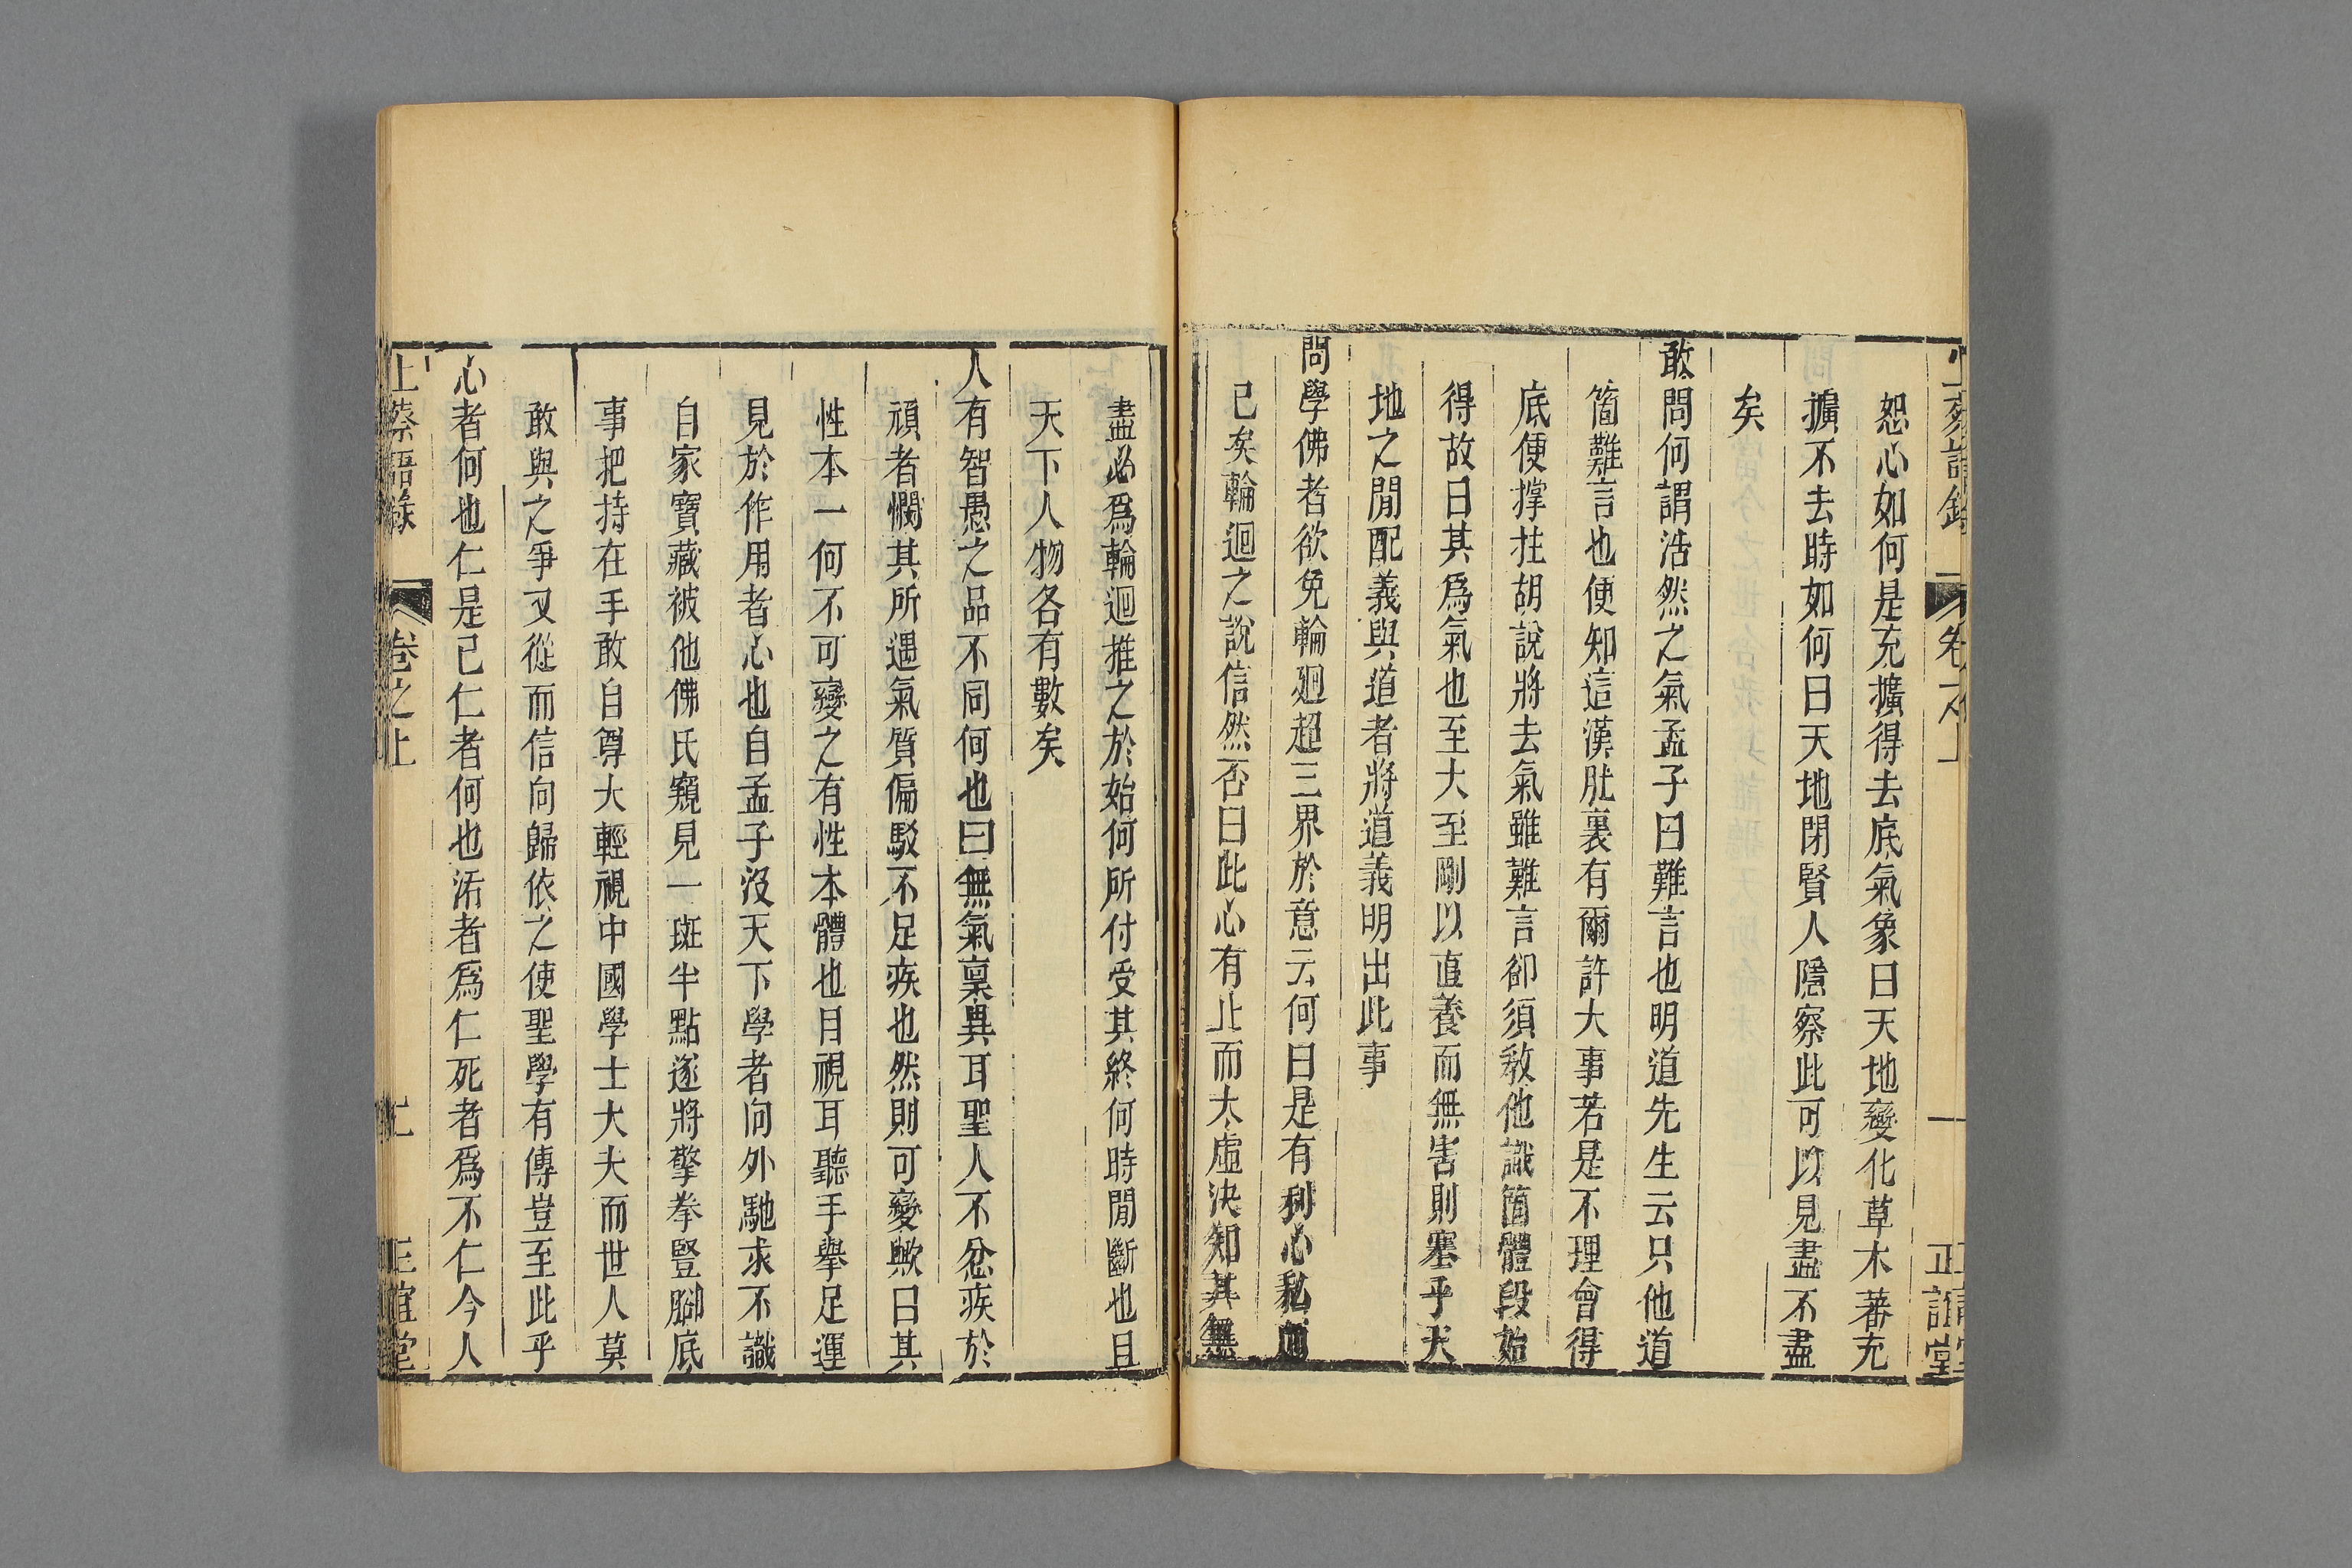 上蔡語錄
卷之上
一
正誼堂
恕心如何是充擴得去底氣象曰天地變化草木蕃充
擴不去時如何曰天地閉賢人隱察此可以見盡不盡
矣
敢問何謂浩然之氣孟子曰難言也明道先生云只他道
箇難言也便知這漢肚裏有爾許大事若是不理會得
底便撑拄胡說將去氣雖難言卻須教他識箇體段始
得故曰其爲氣也至大至剛以直養而無害則塞乎天
地之閒配義與道者將道義明出此事
問學佛者欲免輪廻超三界於意云何曰是有利心私而
已矣輪迴之說信然否曰此心有止而太虛決知其無
盡必爲輪迴推之於始何所付受其終何時閒斷也且
天下人物各有數矣
人有智愚之品不同何也曰無氣稟異耳聖人不忿疾於
頑者憫其所遇氣質偏駁不足疾也然則可變歟曰其
性本一何不可變之有性本體也目視耳聽手舉足運
見於作用者心也自孟子沒天下學者向外馳求不識
自家寶藏被他佛氏窺見一斑半點遂將擎拳豎腳底
事把持在手敢自尊大輕視中國學士大夫而世人莫
敢與之爭又從而信向歸依之使聖學有傳豈至此乎
心者何也仁是已仁者何也活者爲仁死者爲不仁今人
上蔡語錄
卷之上
正誼堂